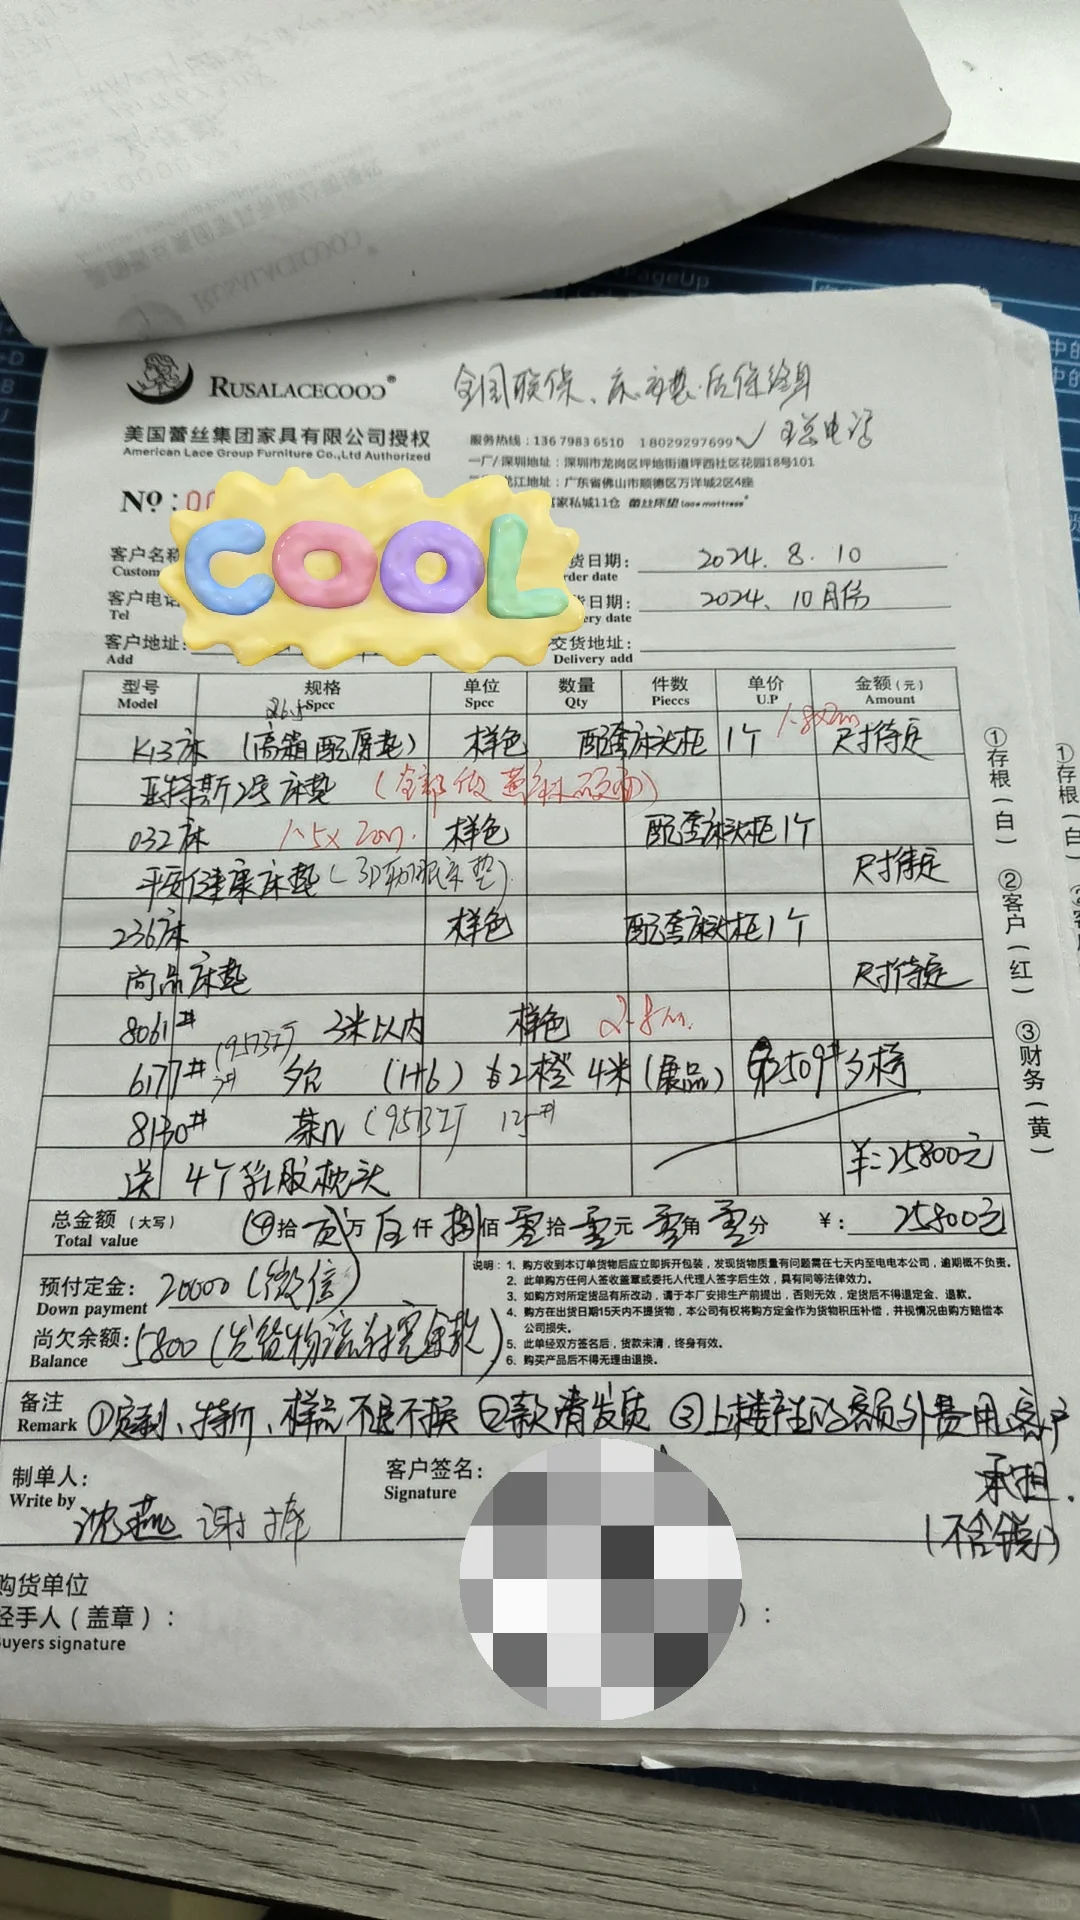 RUSALACECOOC®
全国联保、床.床垫.质保终身
美国蕾丝集团家具有限公司授权
American Lace Group Furniture Co.,Ltd Authorized
服务热线：136 7983 6510 18029297699
电话
一厂/深圳地址：深圳市龙岗区坪地街道坪西社区花园18号101
龙江地址：广东省佛山市顺德区万洋城2区4座
家私城11仓 蕾丝床垫 lace mattress®
№:
COOL
客户名称
Custom
货日期: 2024.8.10
rder date
客户电话
Tel
货日期: 2024、10月份
ery date
客户地址:
Add
交货地址:
Delivery add
型号 规格 单位 数量 件数 单价 金额（元）
Model Spcc Spcc Qty Pieccs U.P Amount
K13床 (高箱配床垫) 样色 配套床头柜1个 1.8x2m 尺寸待定
亚特斯2号床垫
032床 1.5x2m. 样色 配套床头柜1个
平安健康床垫(3D助眠床垫) 尺寸待定
236床 样色 配套床头柜1个
尚品床垫 尺寸待定
8061# 3米以内 样色 2.8m.
6177# (1+6) 4米 (展品) 2509#
8130# 茶几 12#
送 4个乳胶枕头 ¥:25800元
总金额（大写） 拾 贰万 伍仟 捌佰 零拾 零元 零角 零分 ¥: 25800元
Total value
预付定金: 20000 (微信)
Down payment
尚欠余额: 5800
Balance
说明：1、购方收到本订单货物后应立即拆开包装，发现货物质量有问题需在七天内至电电本公司，逾期概不负责。
2、此单购方任何人签收盖章或委托人代理人签字后生效，具有同等法律效力。
3、如购方对所定货品有所改动，请于本厂安排生产前提出，否则无效，定货后不得退定金、退款。
4、购方在出货日期15天内不提货物，本公司有权将购方定金作为货物积压补偿，并视情况由购方赔偿本公司损失。
5、此单经双方签名后，货款未清，终身有效。
6、购买产品后不得无理由退换。
备注 ①定制、特价、样品不退不换 ②款清发货 ③上楼产生的额外费用客户承担.
Remark
(不含税)
制单人:
Write by
沈燕 谢
客户签名:
Signature
购货单位
经手人（盖章）:
uyers signature
）:
①存根（白）②客户（红）③财务（黄）
PageUp